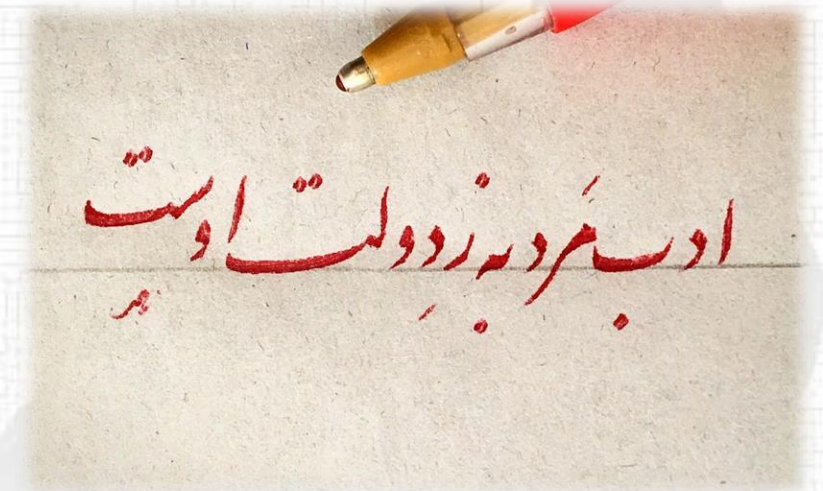 ادب مَرد به ز دولت اوست